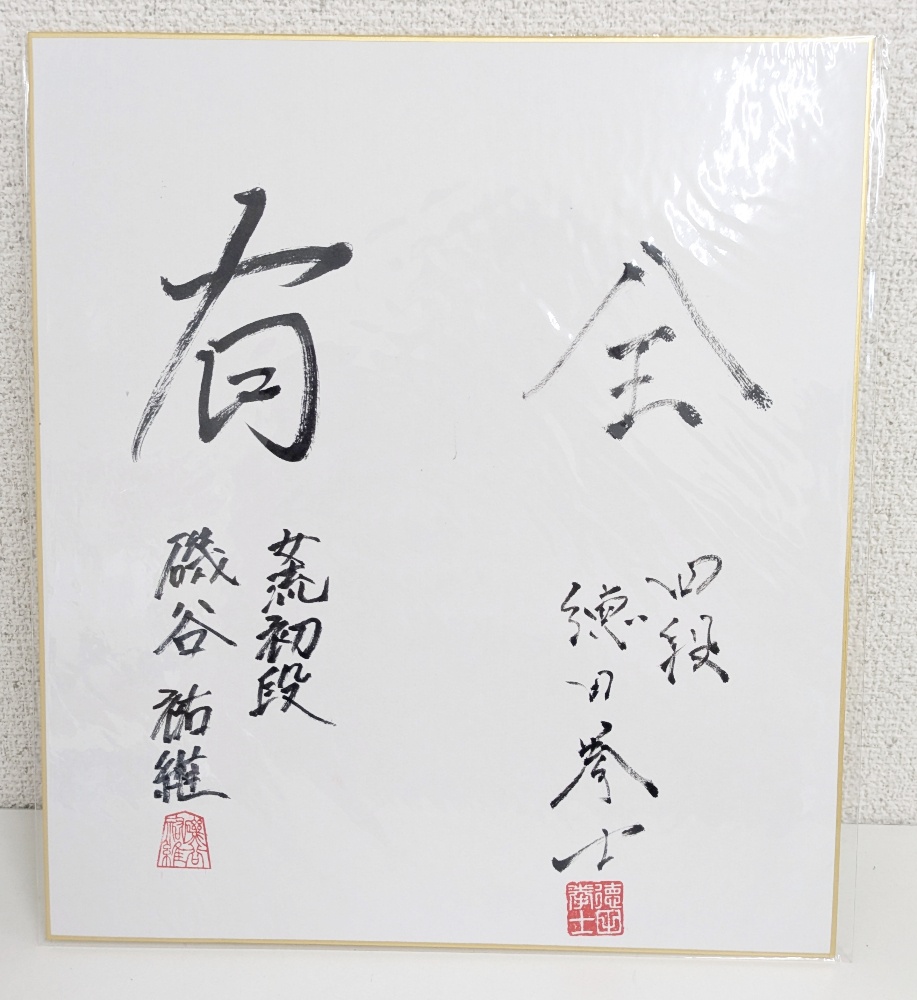 全
四段
徳田拳士
徳田拳士
有
女流初段
磯谷祐維
磯谷祐維